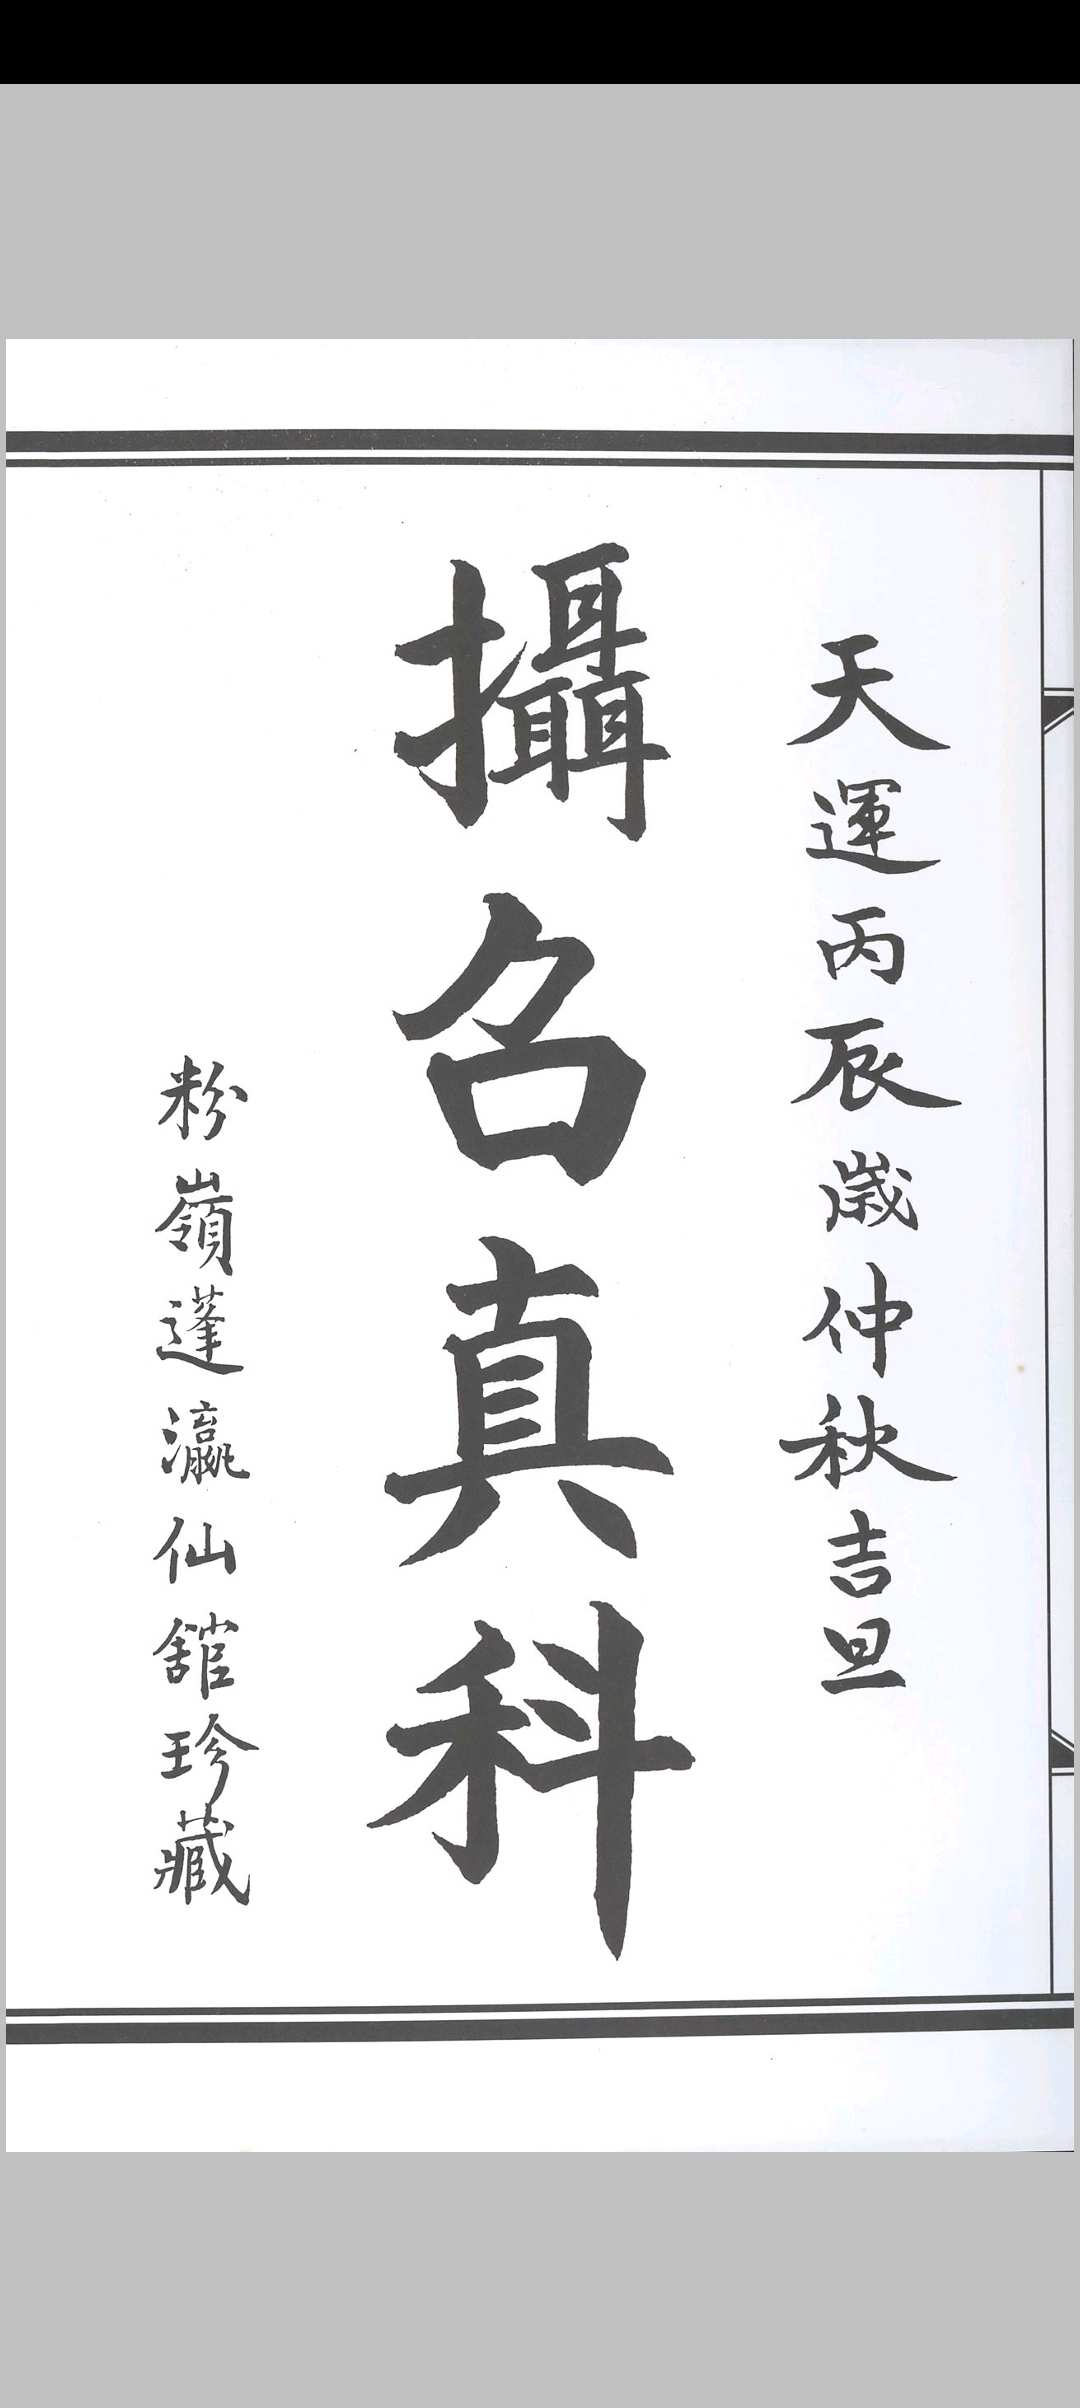 天運丙辰歲仲秋吉旦
攝召真科
粉嶺蓬瀛仙舘珍藏